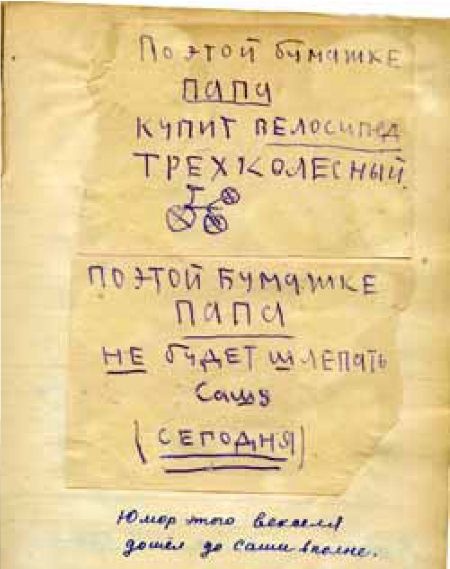 По этой бумашке
ПАПА
КУПИТ ВЕЛОСИПЕД
ТРЕХКОЛЕСНЫЙ
ПО ЭТОЙ БУМАШКЕ
ПАПА
НЕ буДЕТ шЛЕПАТЬ
Сашу
(СЕГОДНЯ)
Юмор этого векселя
дошел до Саши вполне.